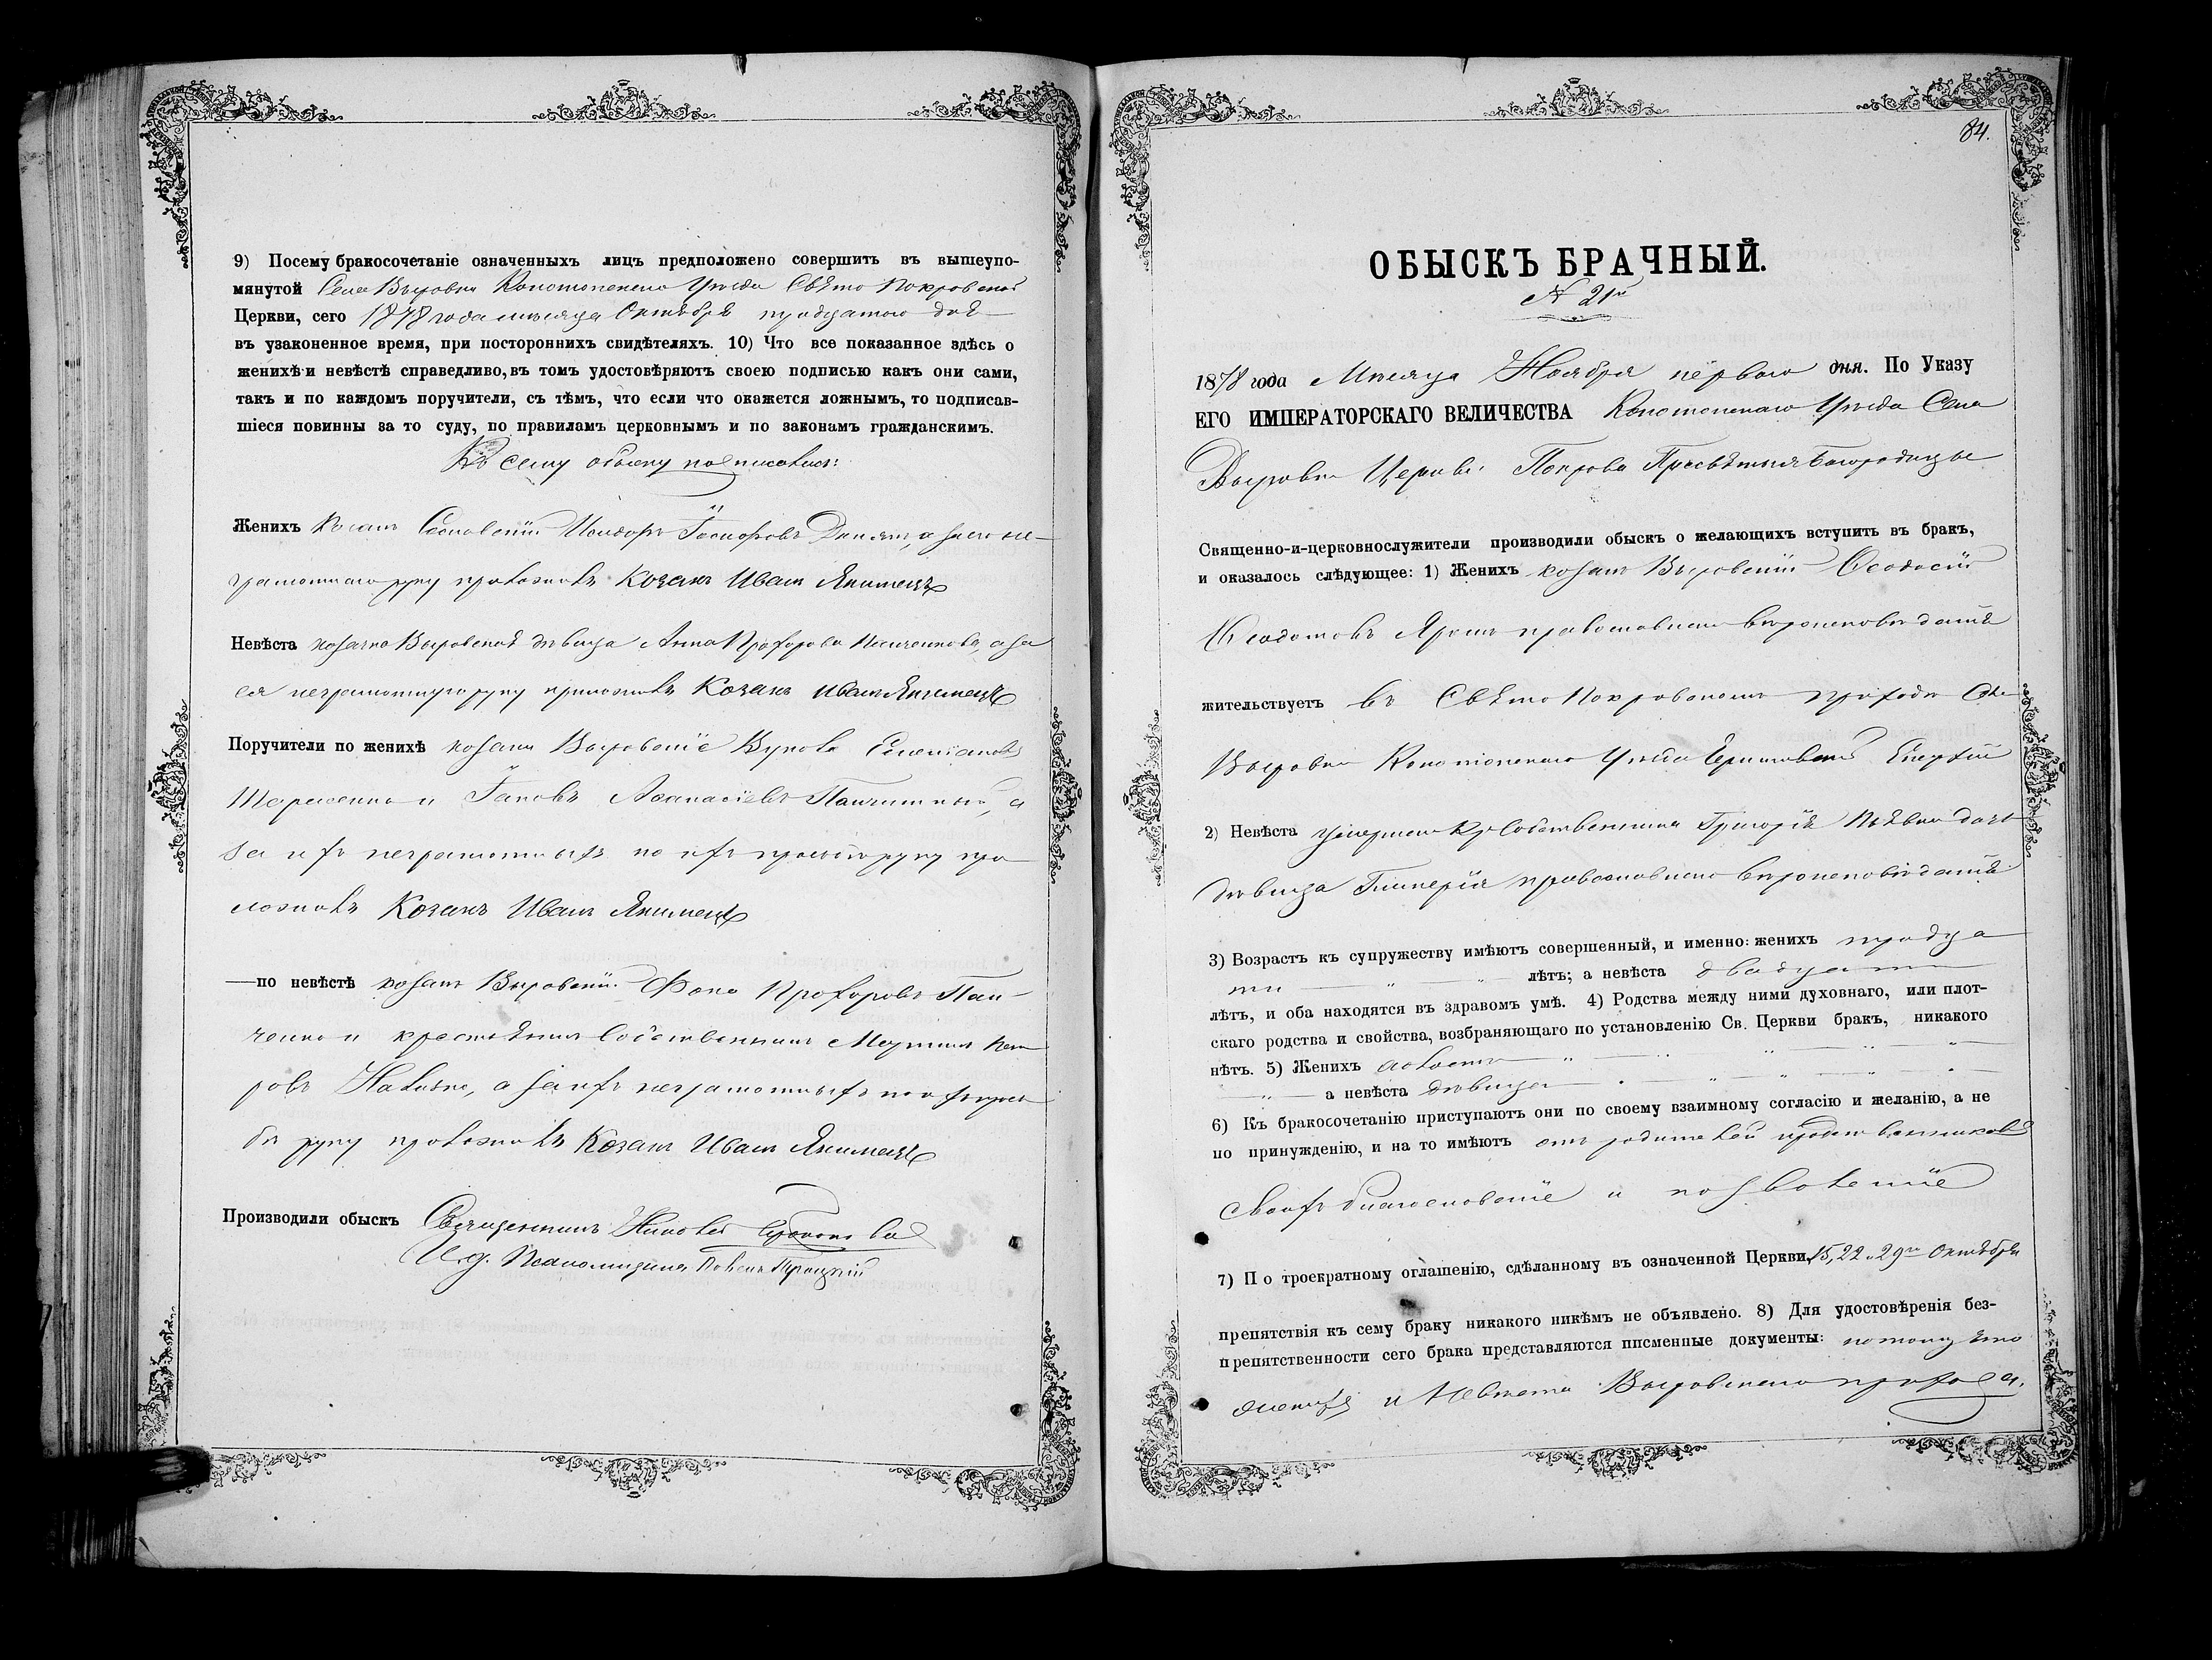 9) Посему бракосочетаніе означенныхъ лицъ предположено совершить въ вышеупо-
мянутой Села Выровки Конотопскаго Уѣзда Свято Покровской
Церкви, сего 1878 года мѣсяца Октября тридцатого дня
въ узаконенное время, при постороннихъ свидѣтеляхъ. 10) Что все показанное здѣсь о
женихѣ и невѣстѣ справедливо, въ томъ удостовѣряютъ своею подписью какъ они сами,
такъ и по каждомъ поручители, съ тѣмъ, что если что окажется ложнымъ, то подписав-
шіеся повинны за то суду, по правиламъ церковнымъ и по законамъ гражданскимъ.
Къ сему обыску подписались:
Женихъ козакъ Исидоръ а за его не-
грамотнаго руку приложилъ Козакъ Иванъ Якимецъ
Невѣста козачка Выровская дѣвица Анна Прохорова а за
ея неграмотную руку приложилъ Козакъ Иванъ Якимецъ
Поручители по женихѣ козаки Выровскіе
и Іаковъ Аѳанасіевъ а
за ихъ неграмотныхъ по ихъ прозьбѣ руку при
ложилъ Козакъ Иванъ Якимецъ
по невѣстѣ козакъ Выровскій Фока Прохоровъ Пан-
ченко и крестьянинъ собственникъ Пет
ровъ а за ихъ неграмотныхъ по ихъ прозь
бѣ руку приложилъ Козакъ Иванъ Якимецъ
Производили обыскъ Священникъ
И. д. Псаломщика Павелъ Троцкій
84.
ОБЫСКЪ БРАЧНЫЙ.
№ 21й
1878 года Мѣсяца Ноября перваго дня. По Указу
ЕГО ИМПЕРАТОРСКАГО ВЕЛИЧЕСТВА Конотопскаго Уѣзда Села
Выровки Церкви Покрова Пресвятыя Богородицы
Священно-и-церковнослужители производили обыскъ о желающихъ вступить въ бракъ,
и оказалось слѣдующее: 1) Женихъ козакъ Выровскій Ѳеодосій
Ѳеодотовъ православнаго вѣроисповѣданія
жительствуетъ въ Свято Покровскомъ приходѣ Села
Выровки Конотопскаго Уѣзда Черниговской Епархіи
2) Невѣста умершаго Кр. собственника Григорія дочь
дѣвица Гликерія православнаго вѣроисповѣданія
3) Возрастъ къ супружеству имѣютъ совершенный, и именно: женихъ тридца
ти лѣтъ; а невѣста двадцати
лѣтъ, и оба находятся въ здравомъ умѣ. 4) Родства между ними духовнаго, или плот-
скаго родства и свойства, возбраняющаго по установленію Св. Церкви бракъ, никакого
нѣтъ. 5) Женихъ холостъ
а невѣста дѣвица
6) Къ бракосочетанію приступаютъ они по своему взаимному согласію и желанію, а не
по принужденію, и на то имѣютъ отъ родителей
своихъ благословеніе и позволеніе
7) По троекратному оглашенію, сдѣланному въ означенной Церкви, 15, 22 и 29го Октября
препятствія къ сему браку никакого никѣмъ не объявлено. 8) Для удостовѣренія без-
препятственности сего брака представляются писменные документы: потому что
женихъ и Невѣста Выровскаго прихода.